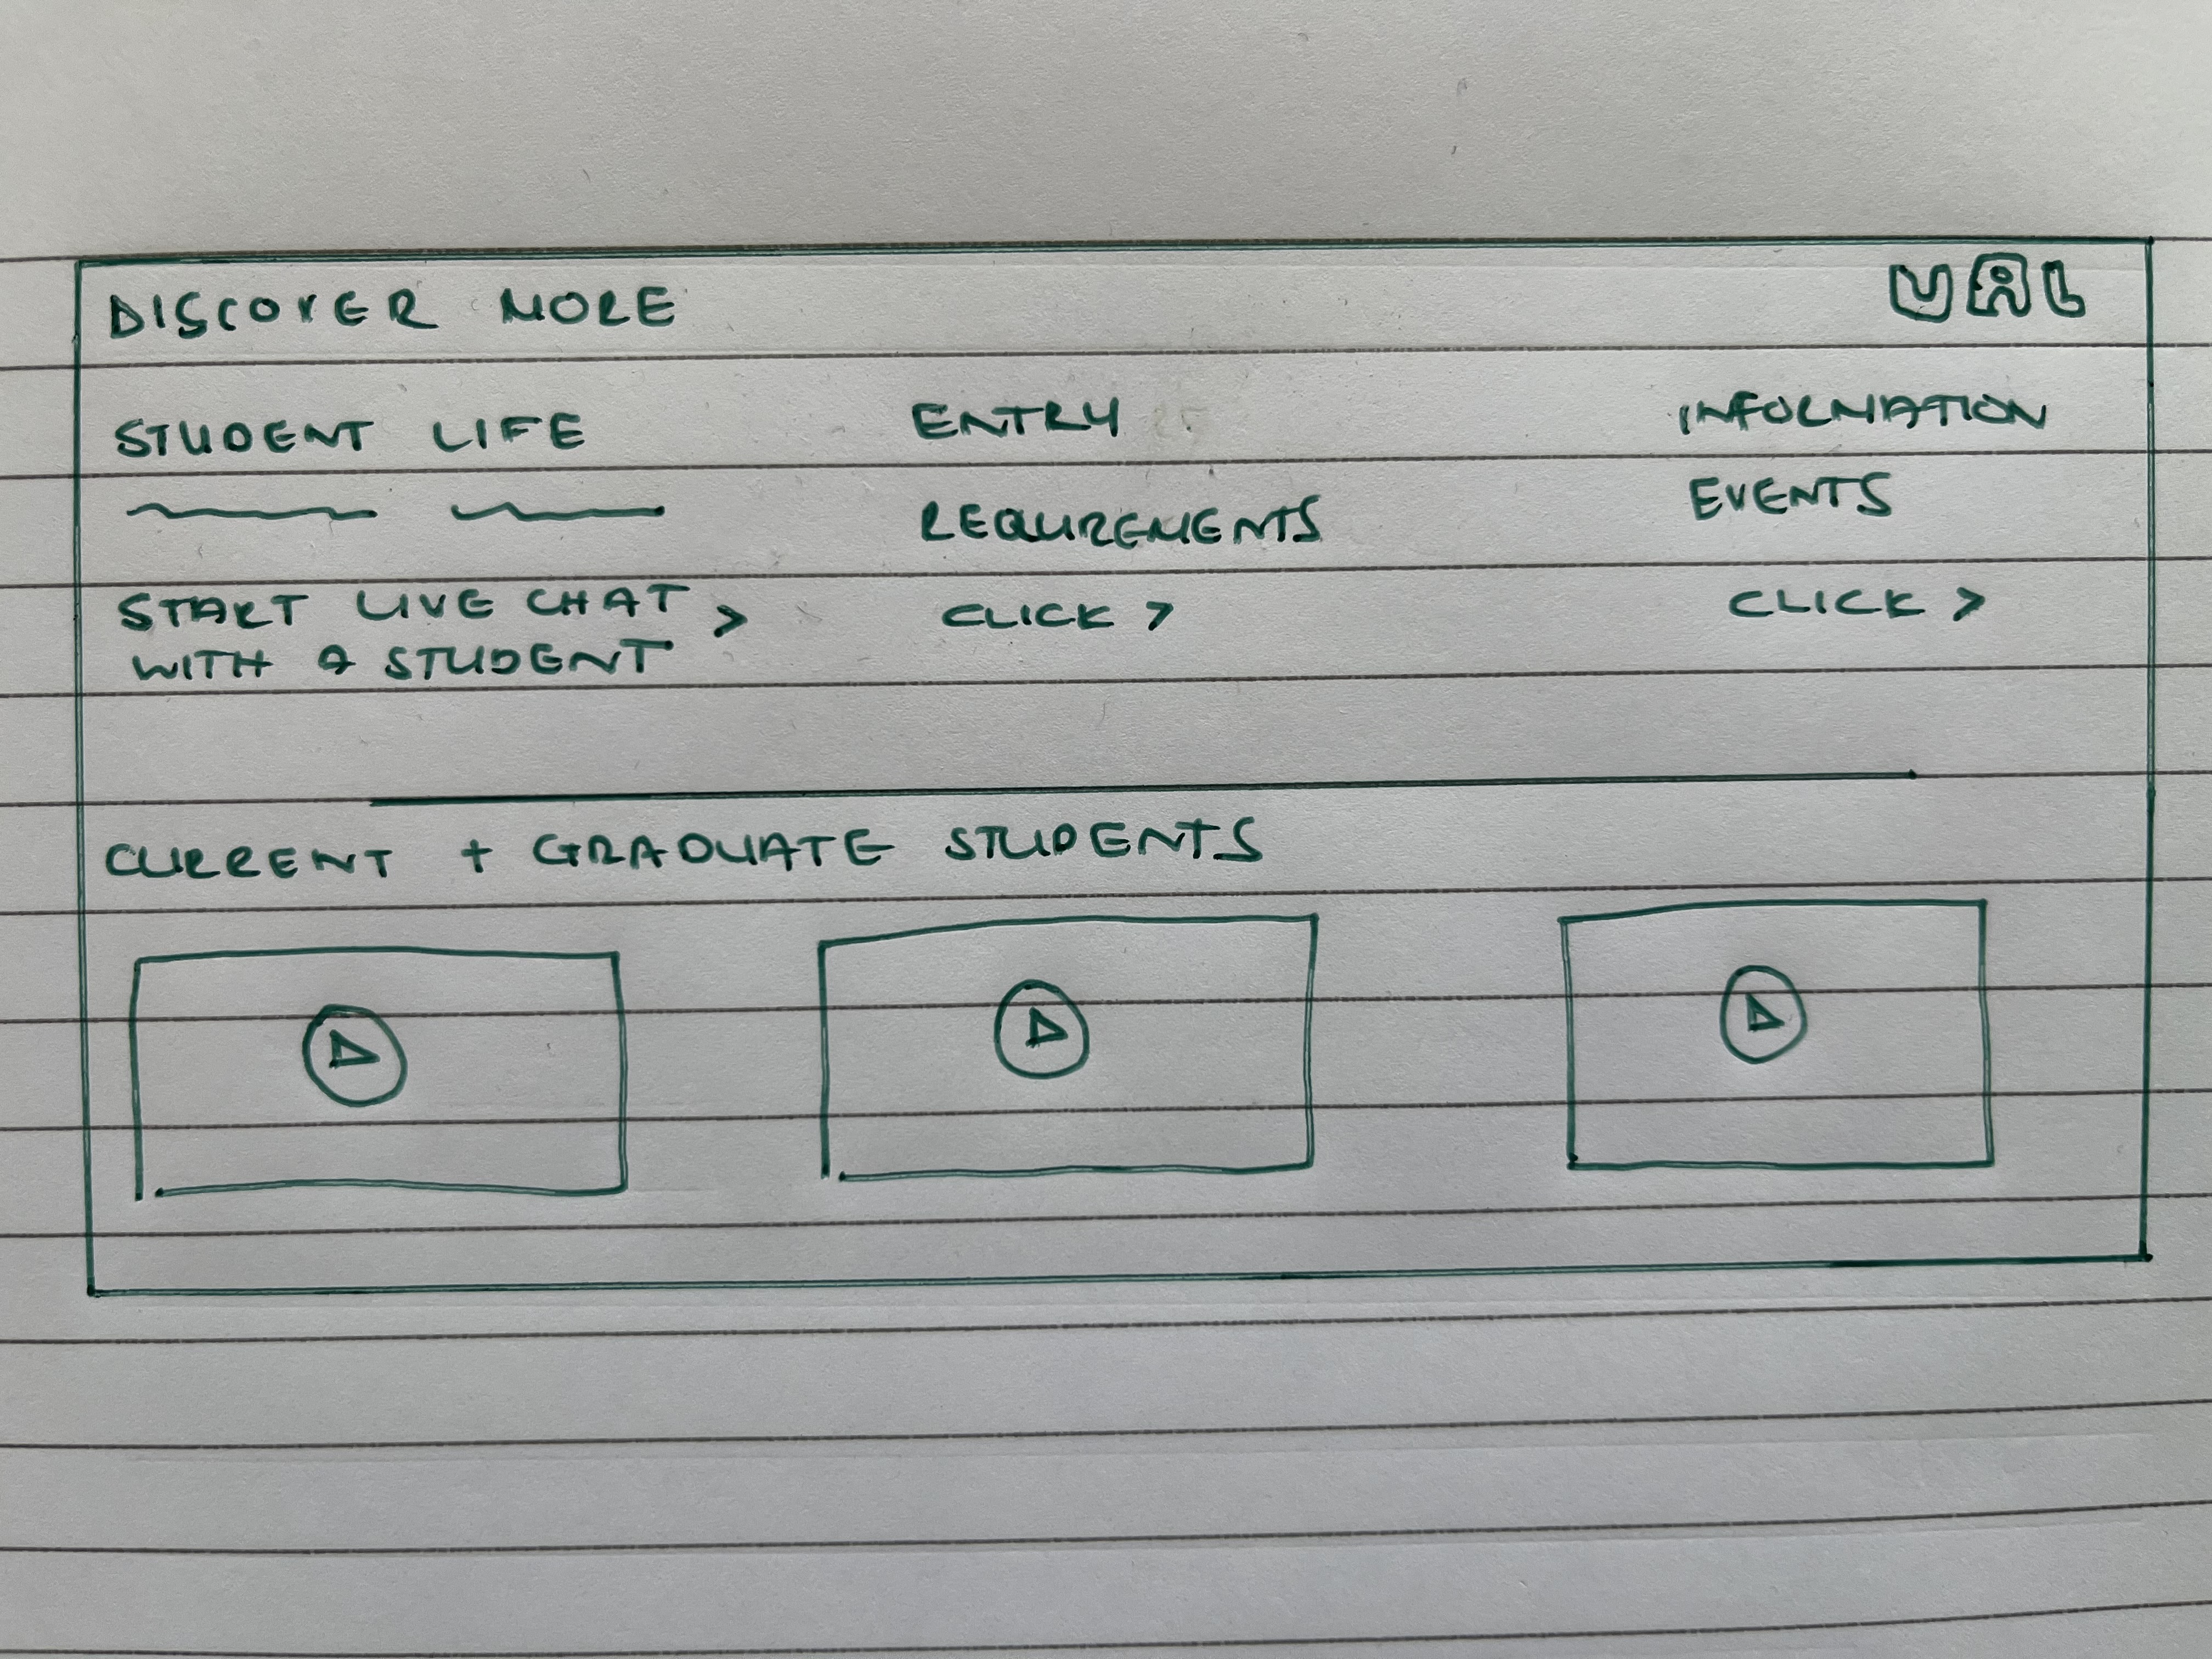 DISCOVER MORE
UAL
STUDENT LIFE
START LIVE CHAT >
WITH A STUDENT
ENTRY
REQUREMENTS
CLICK >
INFORMATION
EVENTS
CLICK >
CURRENT + GRADUATE STUDENTS